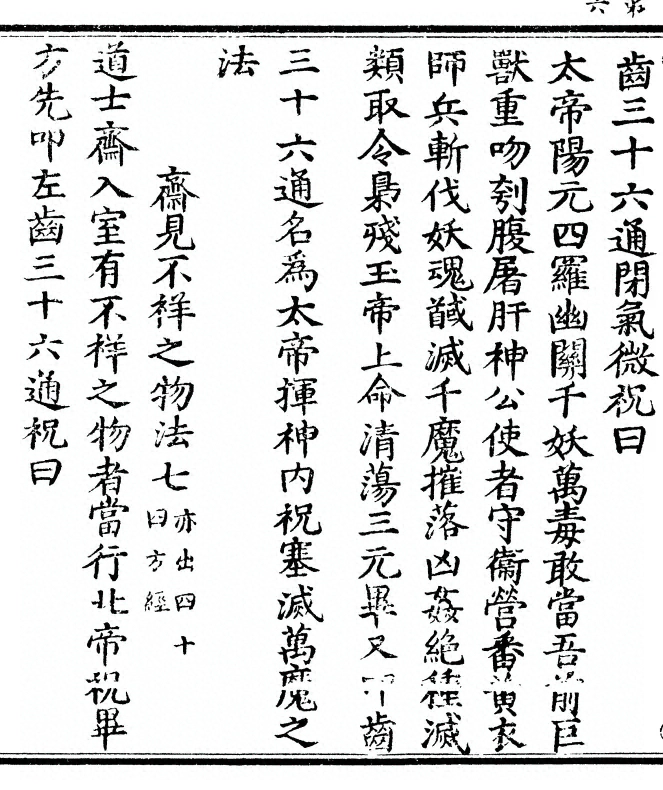 齒三十六通閉氣微祝曰
太帝陽元四羅幽關千妖萬毒敢當吾前巨
獸重吻刳腹屠肝神公使者守衛營番黃衣
師兵斬伐妖魂馘滅千魔摧落凶姦絶種滅
類取令梟殘玉帝上命清蕩三元畢又叩齒
三十六通名爲太帝揮神内祝塞滅萬魔之
法
齋見不祥之物法七
亦出四十
曰方經
道士齋入室有不祥之物者當行北帝祝畢
方先叩左齒三十六通祝曰